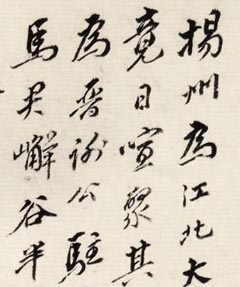 揚州為江北大
竟日喧聚其
為晉謝公駐
馬君嶰谷半